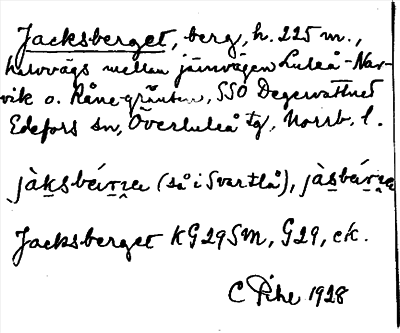 Jacksberget, berg, h. 225 m.,
halvvägs mellan järnvägen Luleå-Nar-
vik o. Råne-gränsen, SSO Degervattnet
Edefors sn, Överluleå tg, Norrb. l.
jàksbárɲa (så i Svartlå), jàsbárɲa
Jacksberget KG29SM, G29, ck.
C Pihe 1928